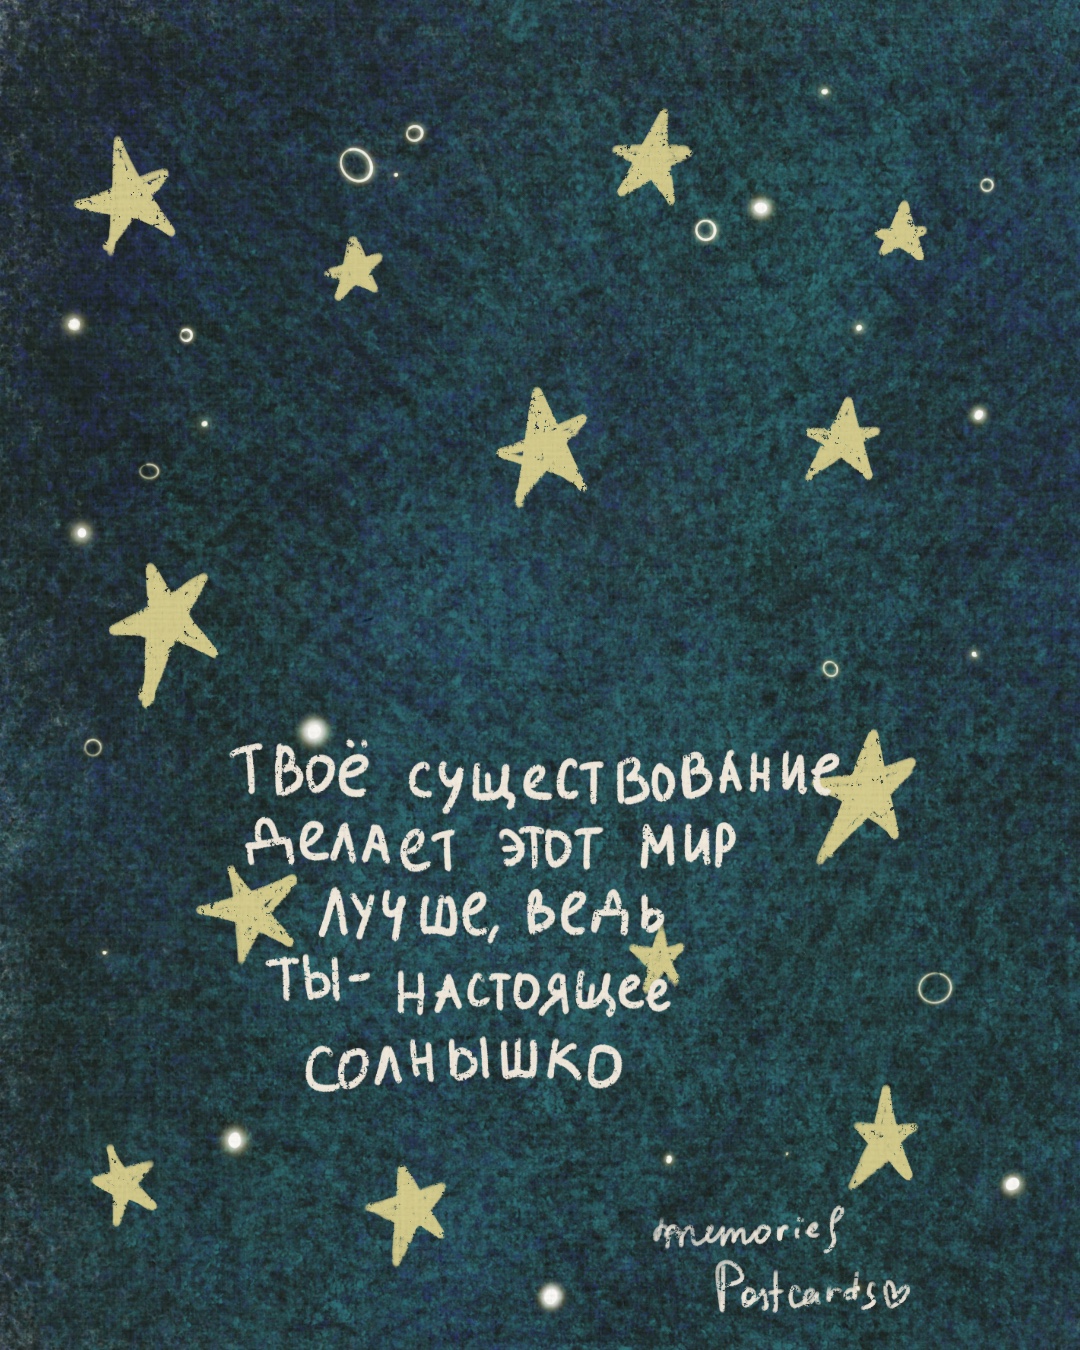 Твоё существование
делает этот мир
лучше, ведь
ты- настоящее
солнышко
memories
Postcards♡